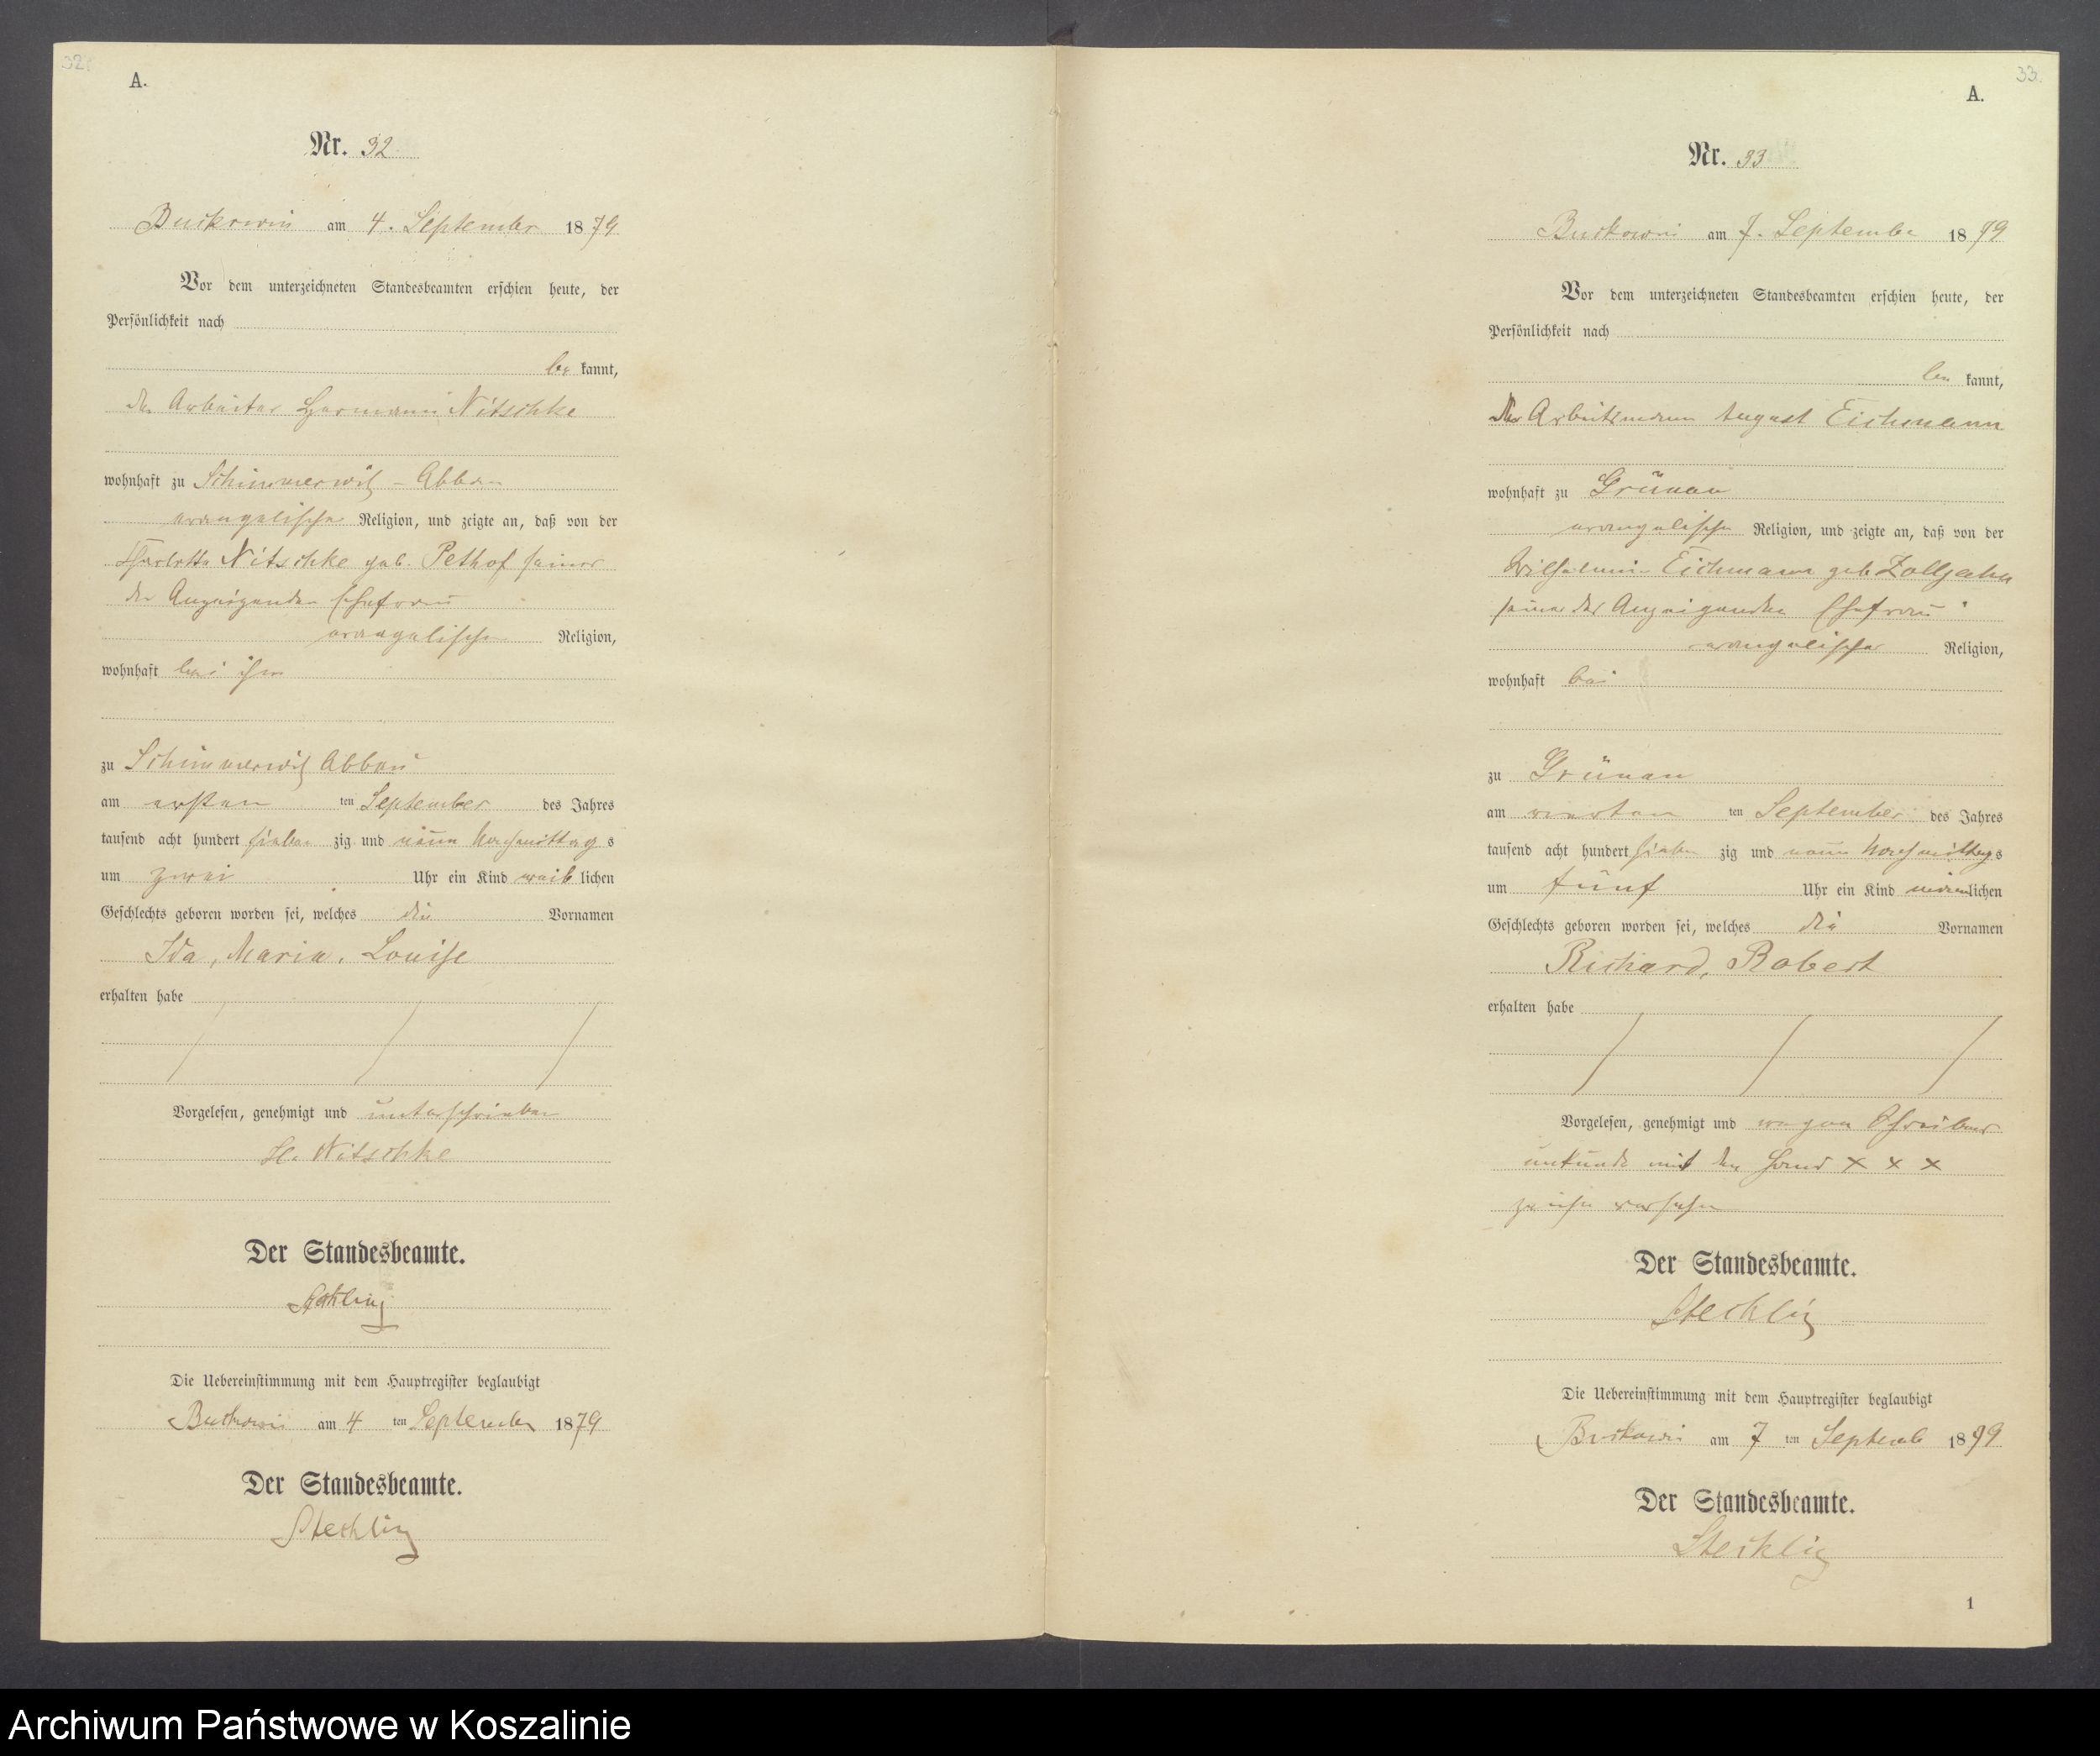 32.
A.
Nr. 32
Buckowin am 4. September 1879
Vor dem unterzeichneten Standesbeamten erschien heute, der
Persönlichkeit nach
be kannt,
der Arbeiter Hermann Nitschke
wohnhaft zu Schimmerwitz - Abbau
evangelischer Religion, und zeigte an, daß von der
Charlotte Nitschke geb. Pethof seiner
des Anzeigenden Ehefrau
evangelischer Religion,
wohnhaft bei ihm
zu Schimmerwitz Abbau
am ersten ten September des Jahres
tausend acht hundert sieben zig und neun Nachmittag s
um zwei Uhr ein Kind weib lichen
Geschlechts geboren worden sei, welches die Vornamen
Ida, Maria, Louise
erhalten habe
Vorgelesen, genehmigt und unterschrieben
H. Nitschke
Der Standesbeamte.
Stechling
Die Uebereinstimmung mit dem Hauptregister beglaubigt
Buckowin am 4 ten September 1879
Der Standesbeamte.
Stechling
33.
A.
Nr. 33
Buckowin am 7. September 1879
Vor dem unterzeichneten Standesbeamten erschien heute, der
Persönlichkeit nach
be kannt,
der Arbeitsmann August Eichmann
wohnhaft zu Grünau
evangelischer Religion, und zeigte an, daß von der
Wilhelmine Eichmann geb Zolljahn
seiner des Anzeigenden Ehefrau
evangelischer Religion,
wohnhaft bei
zu Grünau
am vierten ten September des Jahres
tausend acht hundert sieben zig und neun Nachmittags
um fünf Uhr ein Kind männlichen
Geschlechts geboren worden sei, welches die Vornamen
Richard, Robert
erhalten habe
Vorgelesen, genehmigt und wegen Schreibens
unkunde mit den Hand x x x
zeichen versehen
Der Standesbeamte.
Stechling
Die Uebereinstimmung mit dem Hauptregister beglaubigt
Buckowin am 7 ten Septemb 1879
Der Standesbeamte.
Stechling
1
Archiwum Państwowe w Koszalinie